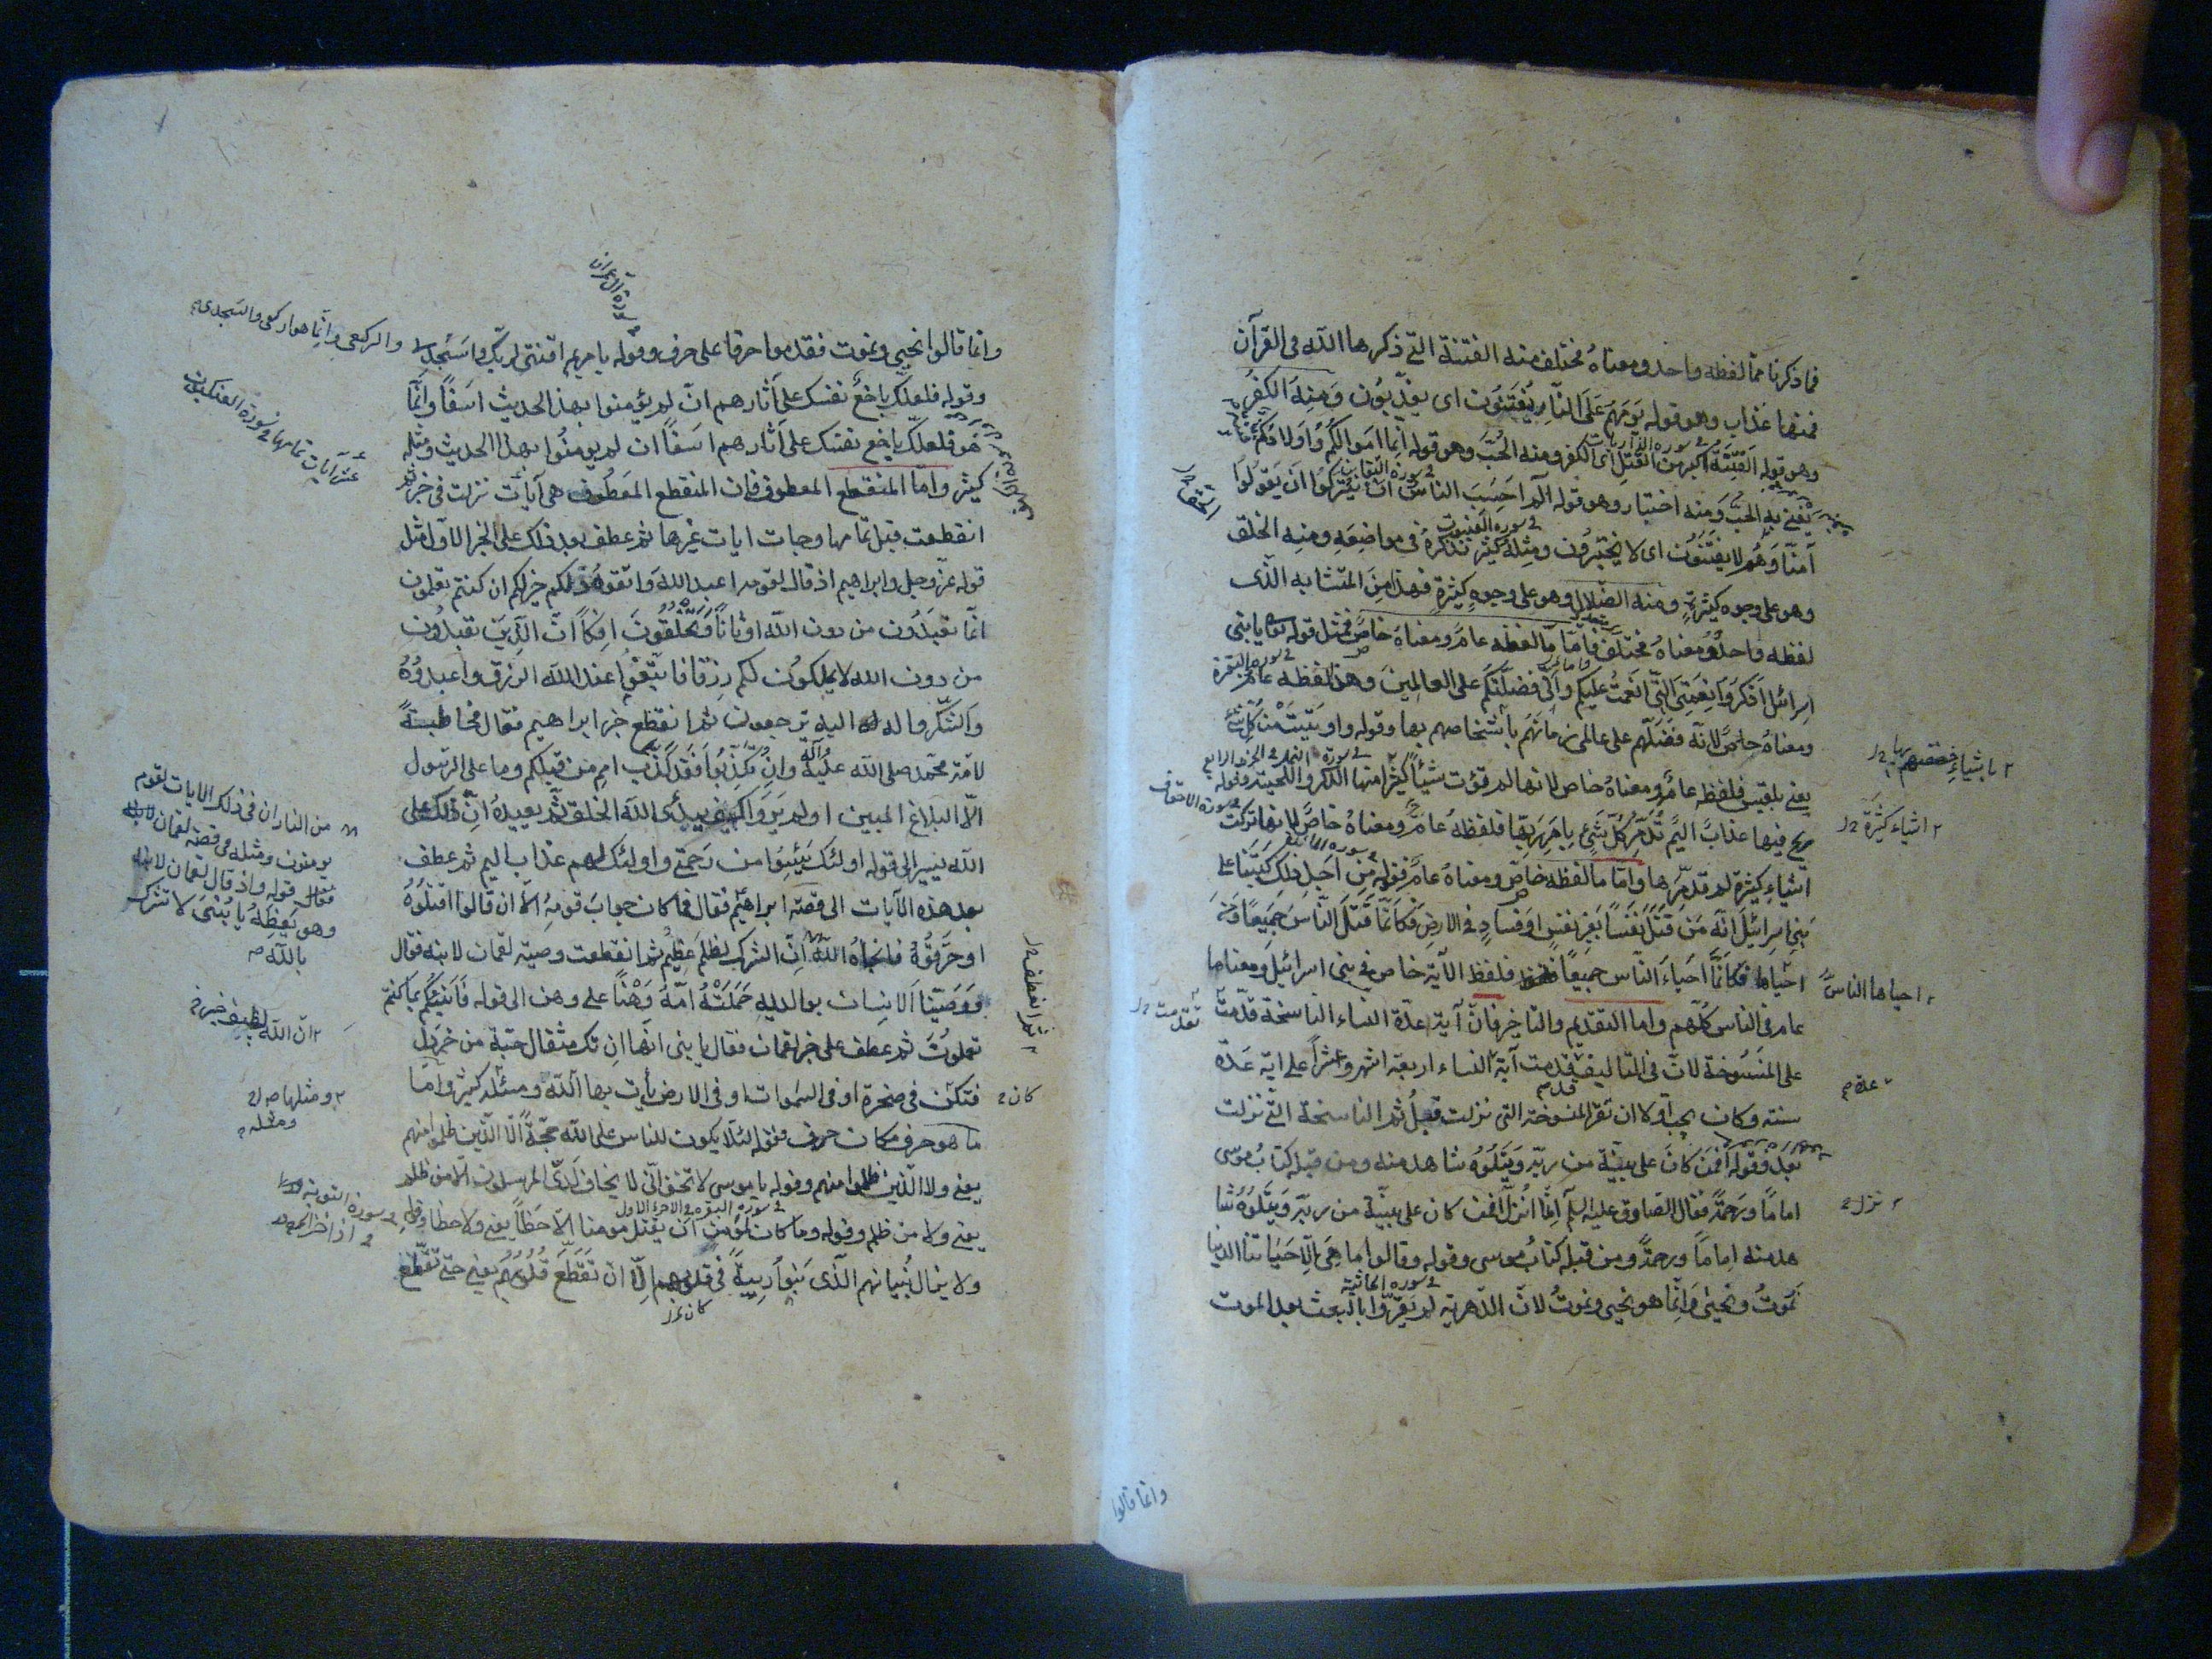 فما ذكرنا مما لفظه واحد ومعناه مختلف منه الفتنة التى ذكرها الله فى القرآن
فمنها عذاب وهو قوله يَوْمَهُمْ عَلَى النَّارِ يُفْتَنُونَ اى يعذّبون وَمنه الكفر
وهو قوله الفتنة اكبر من القتل اى الكفر ومنه الحُبّ وهو قوله انّما اموالكم واولادكم
يعنى به الحبّ ومنه اختبار وهو قوله الم احسب الناس ان يتركوا ان يقولوا
آمنّا وهم لا يفتنون اى لا يختبرون ومثله كثير نذكره فى مواضعه ومنه الخلق
وهو على وجوه كثيرة ومنه الضلال وهو على وجوه كثيرة فهذا من المتشابه الذى
لفظه واحد ومعناه مختلف فامّا ما لفظه عام ومعناه خاص فمثل قوله يا بنى
اسرائيل اذكروا نعمتى التى انعمت عليكم وانّى فضلتكم على العالمين وهذا لفظه عام
ومعناه خاص لانه فضّلهم على عالمى زمانهم باشياء خصّهم بها وقوله واوتيت من كل شئ
يعنى بلقيس فلفظه عام ومعناه خاص لانها لم تؤت شيئاً كثيراً منها الذكر واللحية وقوله
ريح فيها عذاب اليم تُدمّر كلّ شئ بامر ربّها فلفظه عام ومعناه خاصّ لانها تركت
اشياء كثيرة لم تدمّرها وامّا ما لفظه خاص ومعناه عام فقوله من اجل ذلك كتبنا على
بنى اسرائيل انّه من قتل نفساً بغير نفس او فساد فى الارض فكانّما قتل النّاس جميعاً ومن
احياها فكانّما احيا الناس جميعاً فلفظ الآية خاص فى بنى اسرائيل ومعناها
عام فى الناس كلّهم واما التقديم والتاخير فانّ آية عدّة النساء الناسخة قدّمت
على المنسوخة لانّ فى التاليف قدمت آية النساء اربعة اشهر وعشراً على اية عدّة
سنة وكان يجب اولا ان تقرأ المنسوخة التى نزلت قبل ثم الناسخة التى نزلت
بعد وقوله افمن كان على بيّنة من ربّه ويتلوه شاهد منه ومن قبله كتاب موسى
اماماً ورحمةً فقال الصادق عليه السلم انما انزل افمن كان على بيّنة من ربّه ويتلوه شا
هد منه اماماً ورحمةً ومن قبله كتاب موسى وقوله وقالوا ما هى الّا حياتنا الدنيا
نموت ونحيى وانّما هو نحيى ونموت لانّ الدّهرية لم يقرّوا بالبعث بعد الموت
فى سورة الذاريات
فى سورة التغابن
فى سورة العنكبوت
فى سورة البقرة
فى سورة النمل فى الجزء الرابع
سورة الاحقاف
فى سورة الجاثية
باشياء خصّصهم بها
اشياء كثيرة
احياها الناس
تقدمت
عدة
نزل
وانما قالوا
وانّما قالوا نحيى ونموت فقدموا حرفا على حرف وقوله يا مريم اقنتى لربّك واسجدى
والركعى وانّما هو اركعى واسجدى
سورة آل عمران
وقوله فلعلّك باخع نفسك على آثارهم ان لم يؤمنوا بهذا الحديث اسفاً وانّما
هو فلعلّك باخع نفسك على آثارهم اسفاً ان لم يومنوا بهذا الحديث ومثله
كثير وامّا المنقطع المعطوف فان المنقطع المعطوف هى آيات نزلت فى خبر ثم
انقطعت قبل تمامها وجاءت ايات غيرها ثم عطف بعد ذلك على الخبر الاول مثل
قوله عزّ وجل وابراهيم اذ قال لقومه اعبدوا الله واتقوه ذلكم خير لكم ان كنتم تعلمون
انّما تعبدون من دون الله اوثاناً وتخلقون افكاً انّ الّذين تعبدون
من دون الله لا يملكون لكم رزقا فابتغوا عند الله الرزق واعبدوه
واشكروا له اليه ترجعون ثم انقطع خبر ابراهيم فقال مخاطبةً
لامّة محمّد صلى الله عليه وآله وان تكذّبوا فقد كذّب امم من قبلكم وما على الرسول
الّا البلاغ المبين اولم يروا كيف يبدئ الله الخلق ثمّ يعيده انّ ذلك على
الله يسير الى قوله اولئك يئسوا من رحمتى واولئك لهم عذاب اليم ثم عطف
بعد هذه الآيات الى قصّة ابراهيم فقال فما كان جواب قومه الّا ان قالوا اقتلوه
او حرّقوه فانجاه الله انّ الشرك لظلم عظيم ثم انقطعت وصية لقمان لابنه فقال
ووصّينا الانسان بوالديه حملته امّه وهناً على وهن الى قوله فانبّئكم بما كنتم
تعملون ثم عطف على خبر لقمان فقال يا بنى انّها ان تك مثقال حبّة من خردل
فتكن فى صخرة او فى السموات او فى الارض يأت بها الله ومثله كثير وامّا
ما هو حرف مكان حرف فقوله لئلّا يكون للناس على الله حجّةً الّا الّذين ظلموا منهم
يعنى ولا الّذين ظلموا منهم وقوله يا موسى لا تخف انّى لا يخاف لدىّ المرسلون الّا من ظلم
يعنى ولا من ظلم وقوله وما كان لمؤمن ان يقتل مومنا الّا خطأً يعنى ولا خطا وقوله
ولا يزال بُنيانهم الّذى بنوا ريبةً فى قلوبهم الّا ان تقطّع قلوبهم يعنى حتى تقطّع
عشر آيات تمامها فى سورة العنكبوت
من النار ان فى ذلك لايات لقوم
يومنون ومثله فى قصّة لقمان
قوله واذ قال لقمان لابنه
وهو يعظه يا بنىّ لا تشرك
بالله
ثم العطف
ان الله لطيف خبير
كان
ومثلها
ومثله
فى سورة البقرة فى الاجزاء الاول
فى سورة التوبة